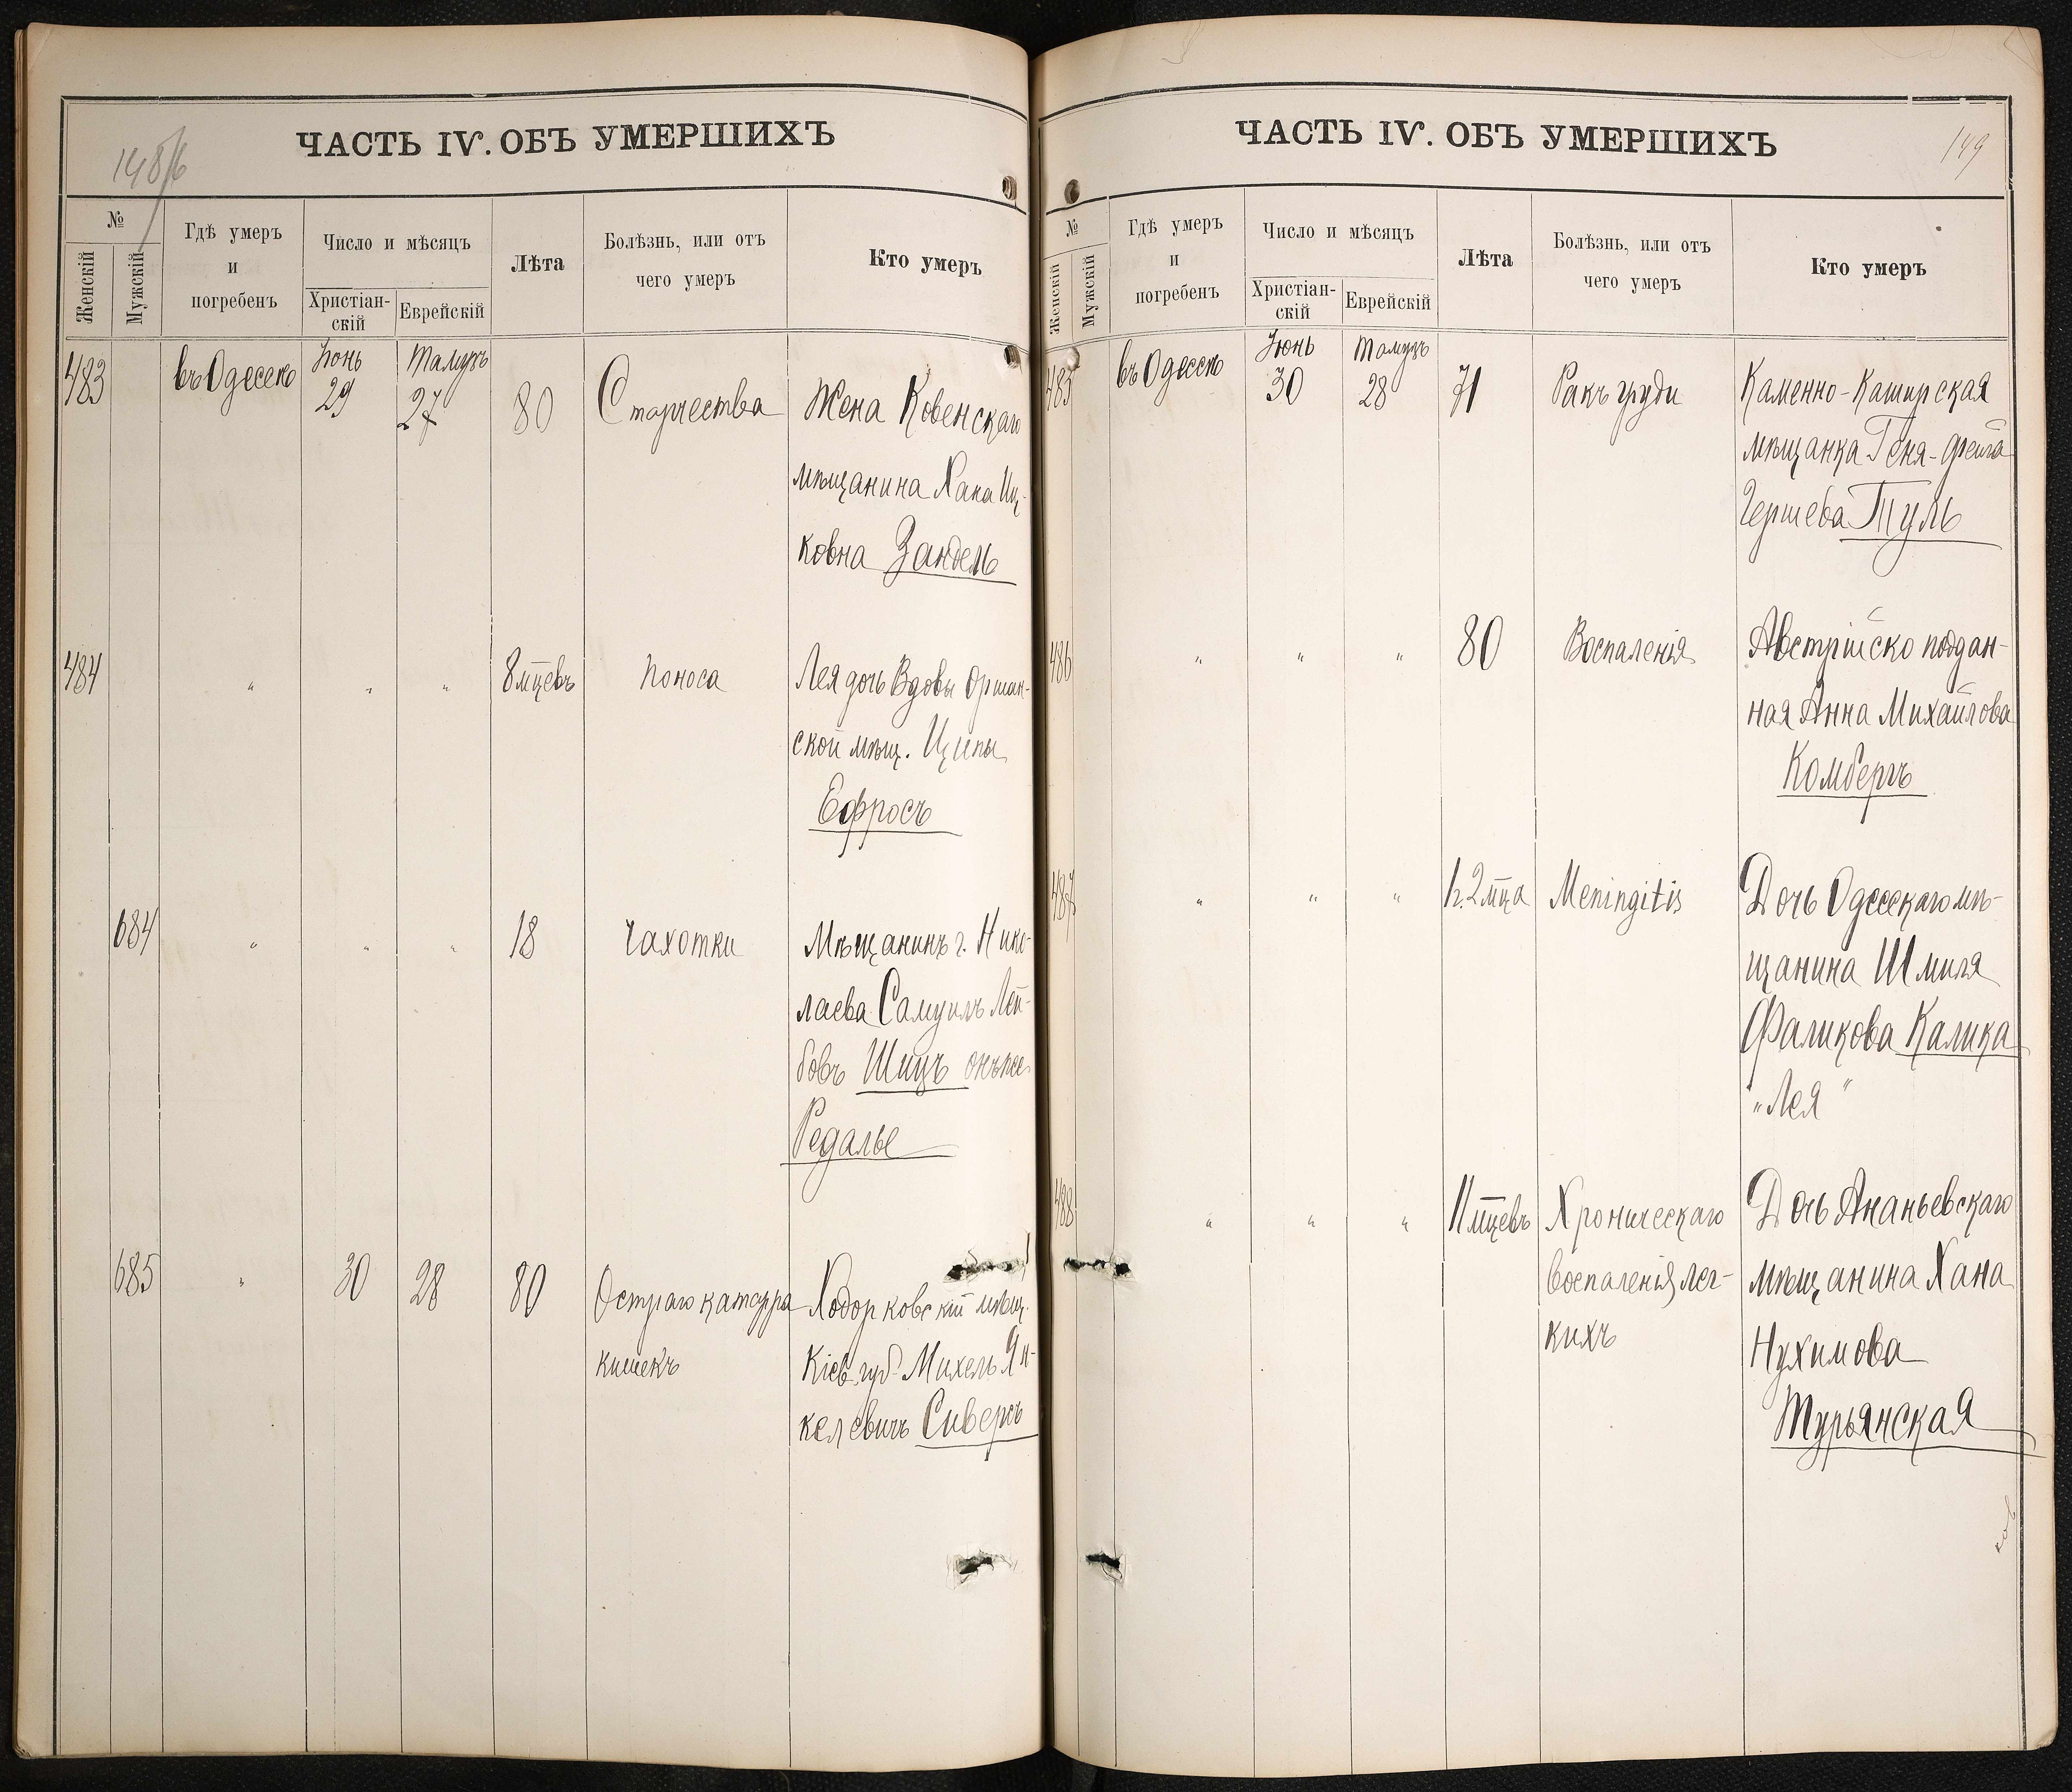 ЧАСТЬ IV. ОБЪ УМЕРШИХЪ
№
Женскій
Мужскій
Гдѣ умеръ
и
погребенъ
Число и мѣсяцъ
Христіан-
скій
Еврейскій
Лѣта
Болѣзнь, или отъ
чего умеръ
Кто умеръ
483
въ Одессѣ
Іюнь
29
Тамузъ
27
80
Старчества
Жена Ковенскаго
мѣщанина Хана Иц-
ковна Зандель
484
" " "
8 мцевъ
Поноса
Лея дочь Вдовы Оршан-
ской мѣщ. Ципы
Ефросъ
684
" " "
18
Чахотки
Мѣщанинъ г. Нико-
лаева Самуилъ Лей-
бовъ Шицъ онъже
Редалье
685
"
30
28
80
Остраго катарра
кишекъ
Ходорковскій мѣщ.
Кіев. губ. Михель Ян-
келевичъ Сиверсъ
ЧАСТЬ IV. ОБЪ УМЕРШИХЪ
149
№
Женскій
Мужскій
Гдѣ умеръ
и
погребенъ
Число и мѣсяцъ
Христіан-
скій
Еврейскій
Лѣта
Болѣзнь, или отъ
чего умеръ
Кто умеръ
485
въ Одессѣ
Іюнь
30
Тамузъ
28
71
Ракъ груди
Каменно-Каширская
мѣщанка Геня-Фейга
Гершева Туль
486
" " "
80
Воспаленія
Австрійско поддан-
ная Анна Михайлова
Комбергъ
487
" " "
2 мца
Meningitis
Дочь Одесскаго мѣ-
щанина Шмиля
Фаликова Калика
"Лея"
488
" " "
11 мцевъ
Хроническаго
воспаленія лег-
кихъ
Дочь Ананьевскаго
мѣщанина Хана
Нухимова
Турьянская